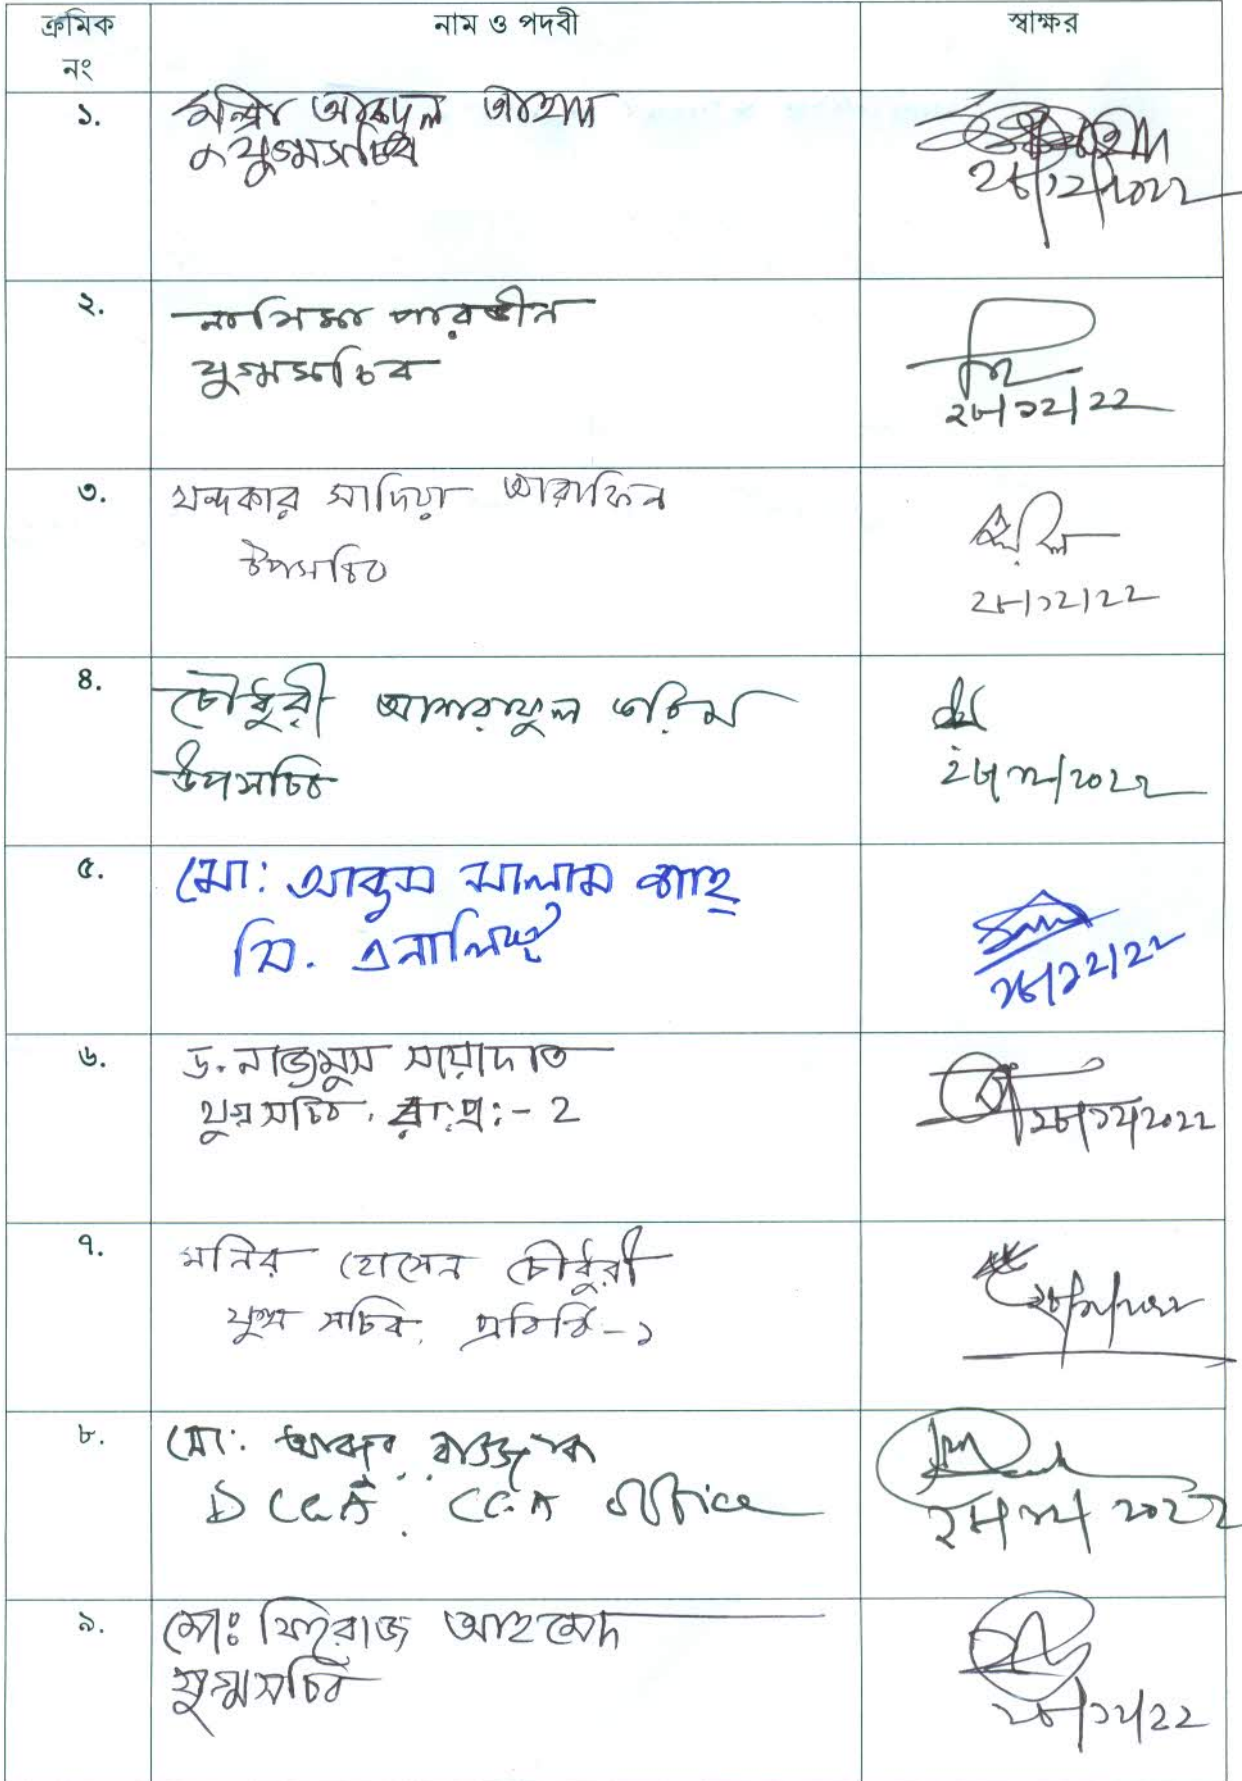 ক্রমিক নং	নাম ও পদবী	স্বাক্ষর
১.	আবদুল আহাদ
যুগ্মসচিব
২৮/১২/২০২২
২.	নাসিমা পারভীন
যুগ্মসচিব
২৮/১২/২২
৩.	খন্দকার সাদিয়া আরাফিন
উপসচিব
২৮/১২/২২
৪.	চৌধুরী আশরাফুল করিম
উপসচিব
২৮/১২/২০২২
৫.	মো: আবুস সালাম শাহ্
সি. এনালিস্ট
২৮/১২/২২
৬.	ড. নাজমুস সায়াদাত
যুগ্মসচিব, রা:প্র:-২
২৮/১২/২০২২
৭.	মনির হোসেন চৌধুরী
যুগ্ম সচিব,
২৮/১২/২০২২
৮.	মো: আব্দুর রাজ্জাক
DCGA, CGA Office
২৮/১২/২০২২
৯.	মোঃ ফিরোজ আহমেদ
যুগ্মসচিব
২৮/১২/২২